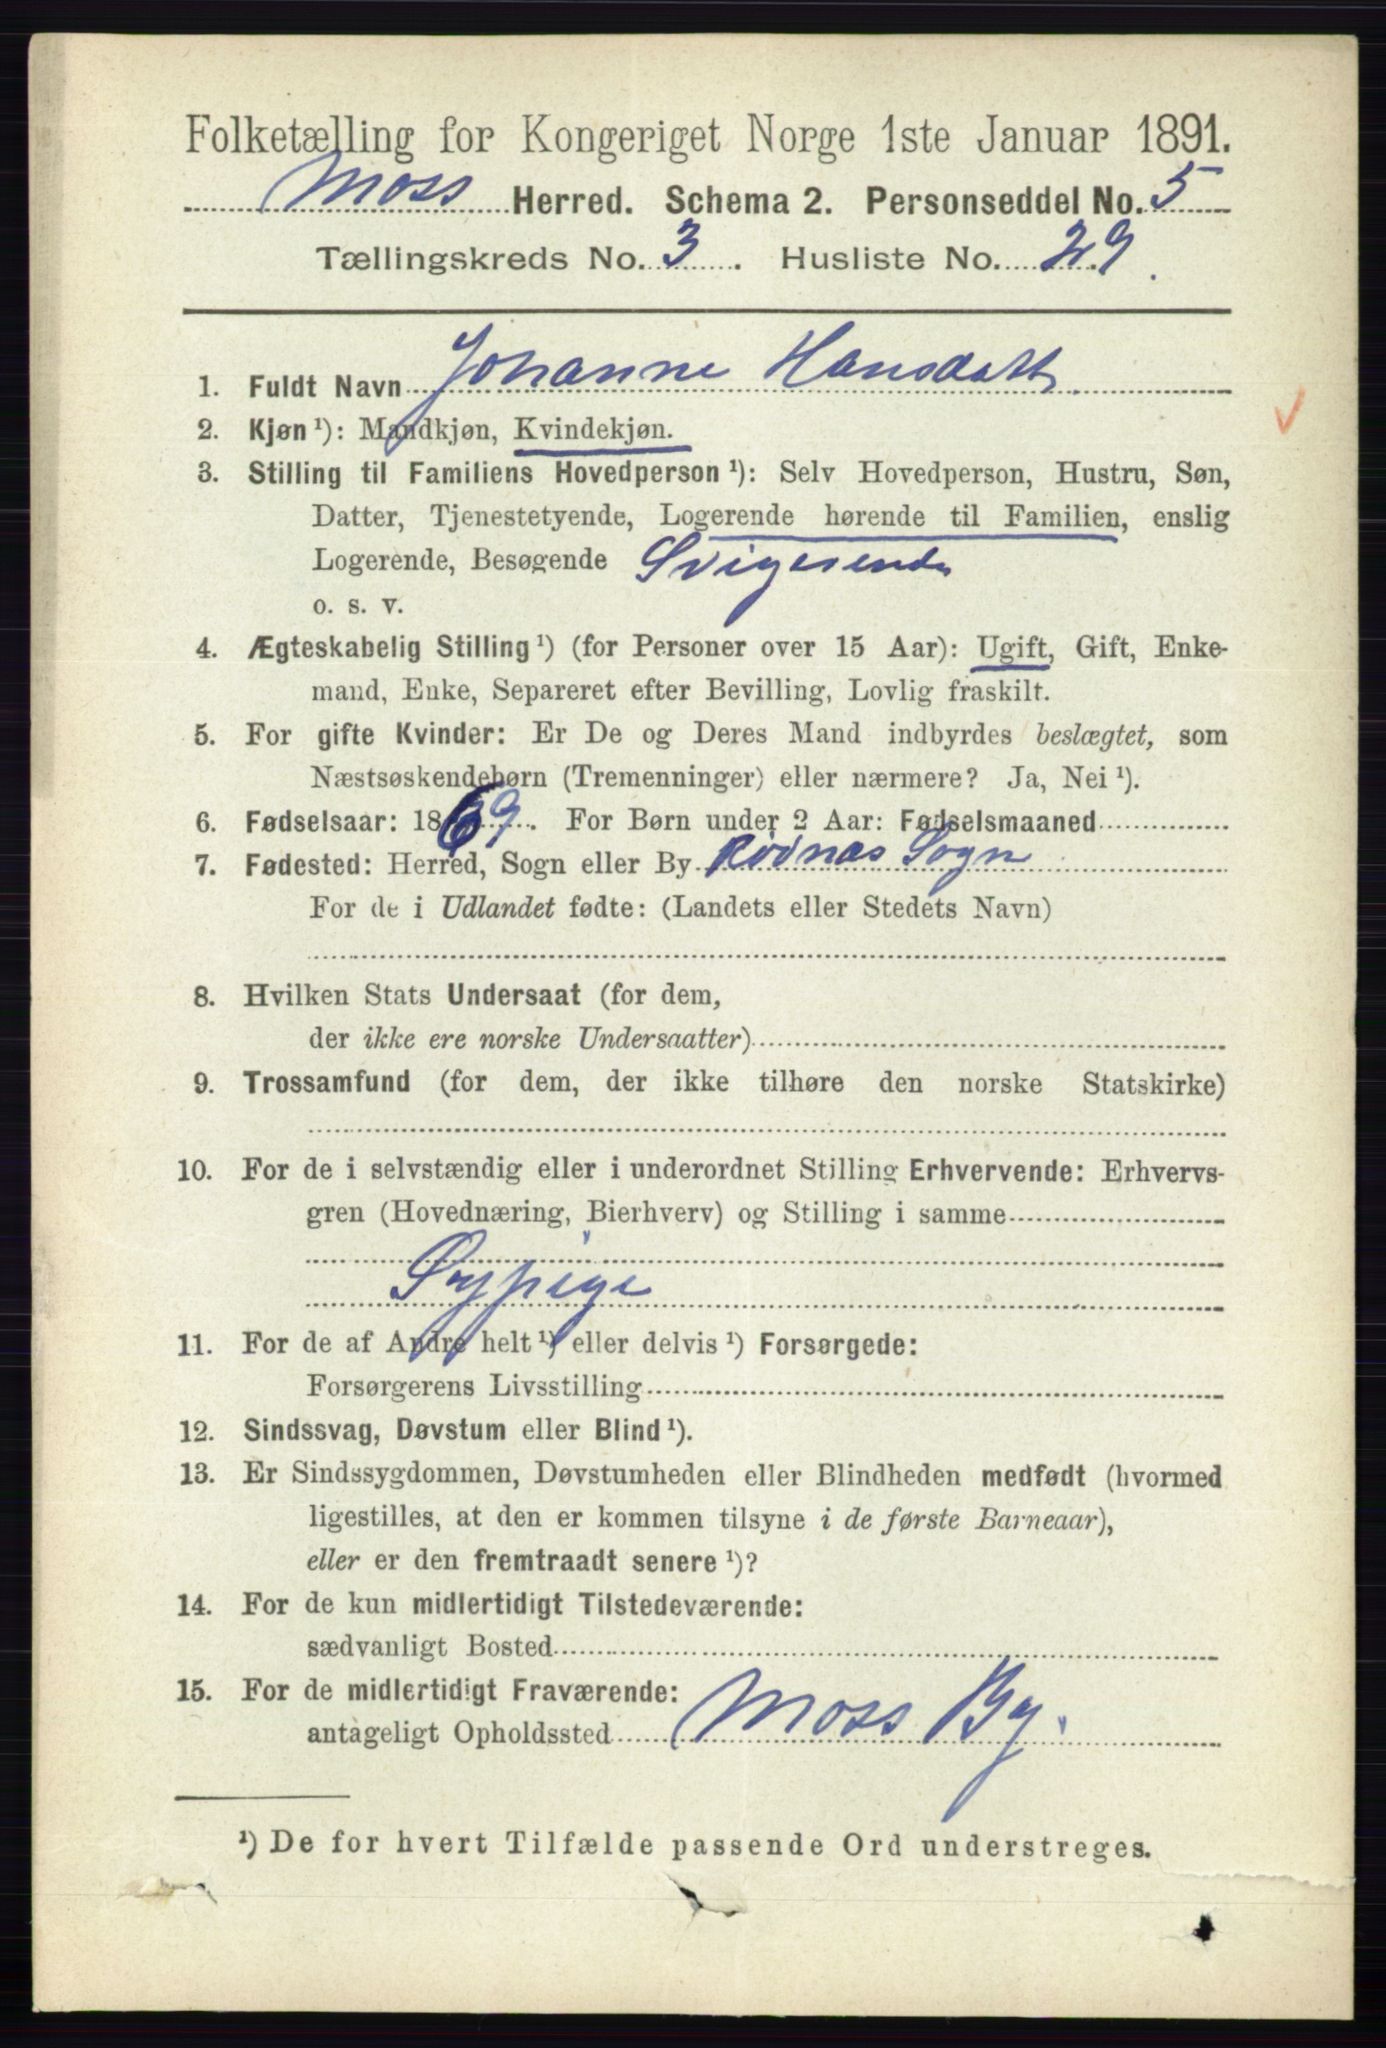 Folketælling for Kongeriget Norge 1ste Januar 1891.
Moss Herred. Schema 2. Personseddel No. 5
Tællingskreds No. 3. Husliste No. 29.
1. Fuldt Navn Johanne Hansdatt
2. Kjøn ¹): Mandkjøn, Kvindekjøn.
3. Stilling til Familiens Hovedperson ¹): Selv Hovedperson, Hustru, Søn,
Datter, Tjenestetyende, Logerende hørende til Familien, enslig
Logerende, Besøgende
o. s. v.
4. Ægteskabelig Stilling ¹) (for Personer over 15 Aar): Ugift, Gift, Enke-
mand, Enke, Separeret efter Bevilling, Lovlig fraskilt.
5. For gifte Kvinder: Er De og Deres Mand indbyrdes beslægtet, som
Næstsøskendebørn (Tremenninger) eller nærmere? Ja, Nei ¹).
6. Fødselsaar: 1869. For Børn under 2 Aar: Fødselsmaaned
7. Fødested: Herred, Sogn eller By Rødnæs Sogn
For de i Udlandet fødte: (Landets eller Stedets Navn)
8. Hvilken Stats Undersaat (for dem,
der ikke ere norske Undersaatter)
9. Trossamfund (for dem, der ikke tilhøre den norske Statskirke)
10. For de i selvstændig eller i underordnet Stilling Erhvervende: Erhvervs-
gren (Hovednæring, Bierhverv) og Stilling i samme
Sypige
11. For de af Andre helt ¹) eller delvis ¹) Forsørgede:
Forsørgerens Livsstilling
12. Sindssvag, Døvstum eller Blind ¹).
13. Er Sindssygdommen, Døvstumheden eller Blindheden medfødt (hvormed
ligestilles, at den er kommen tilsyne i de første Barneaar),
eller er den fremtraadt senere ¹)?
14. For de kun midlertidigt Tilstedeværende:
sædvanligt Bosted
15. For de midlertidigt Fraværende:
antageligt Opholdssted Moss By.
¹) De for hvert Tilfælde passende Ord understreges.